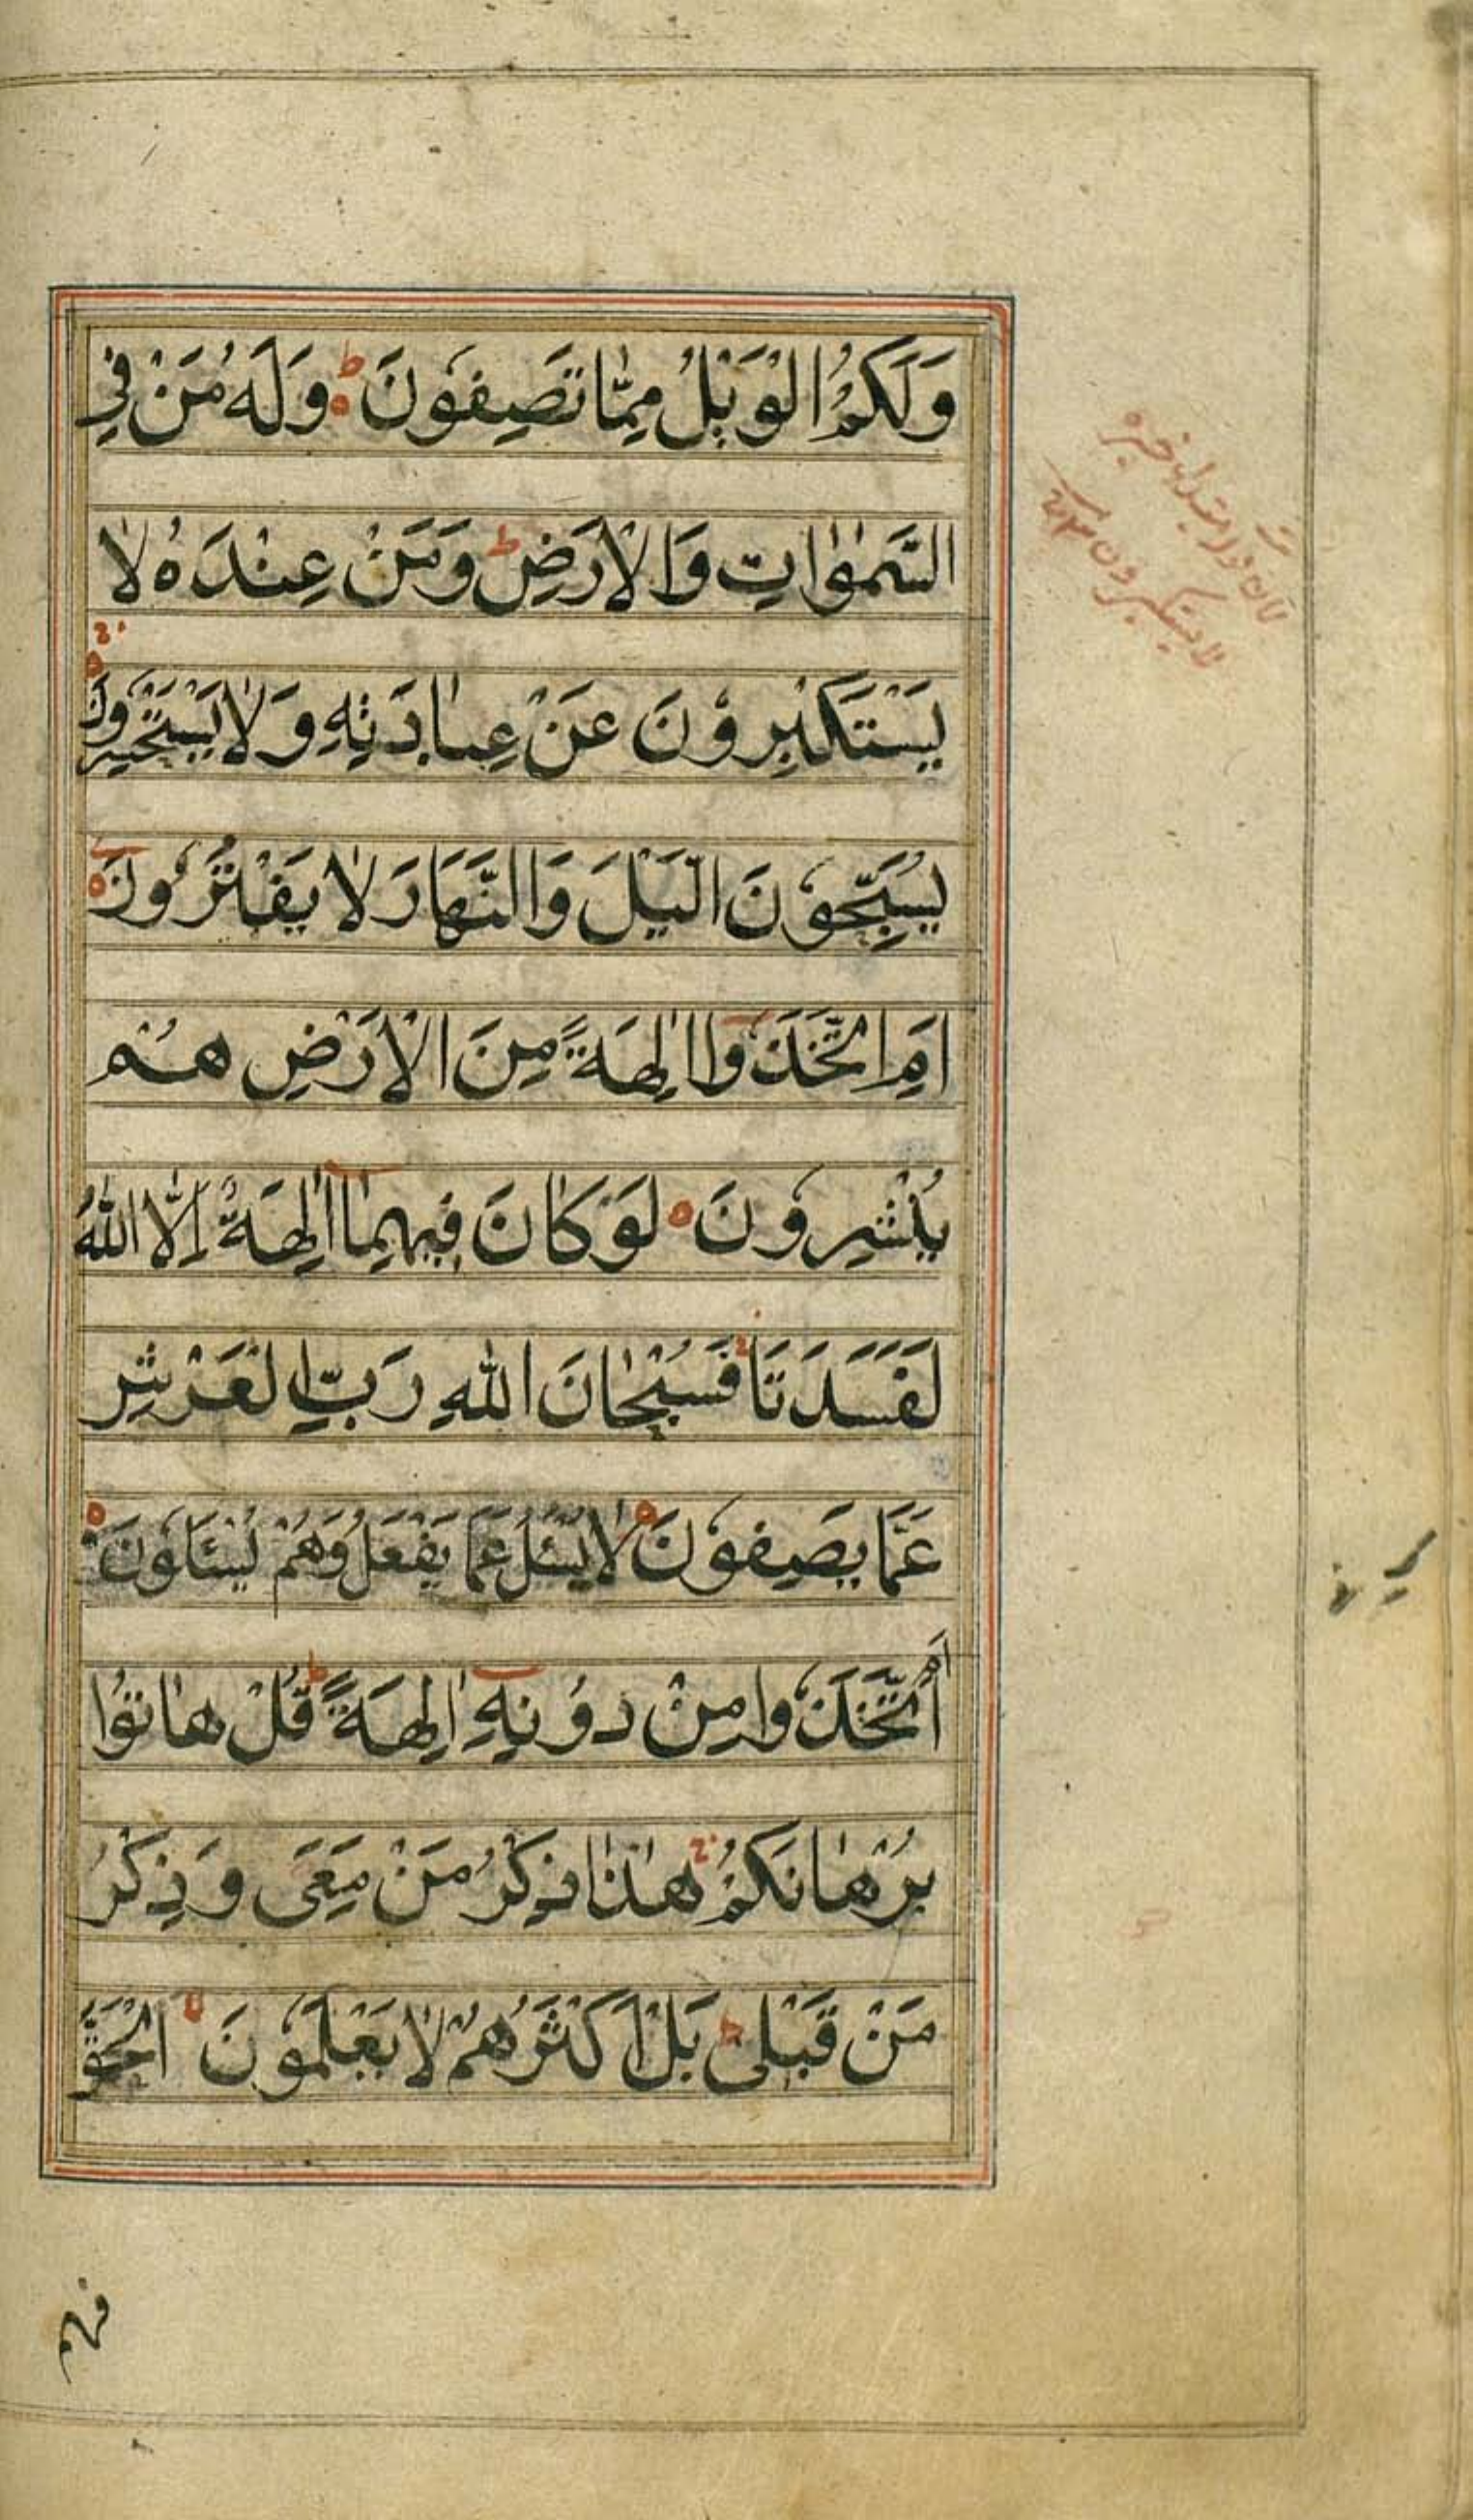 وَلَكُمُ الْوَيْلُ مِمَّا تَصِفُونَ ط وَلَهُ مَنْ فِي
السَّمٰوٰاتِ وَالْاَرْضِ ط وَمَنْ عِنْدَهُ لَا
يَسْتَكْبِرُونَ عَنْ عِبٰادَتِهِ وَلَا يَسْتَحْسِرُونَ
يُسَبِّحُونَ الَّيْلَ وَالنَّهَارَ لَا يَفْتُرُونَ
اَمِ اتَّخَذُوا اٰلِهَةً مِنَ الْاَرْضِ هُمْ
يُنْشِرُونَ لَوْ كَانَ فِيهِمٰا اٰلِهَةٌ اِلَّا اللّٰهُ
لَفَسَدَتَا فَسُبْحٰانَ اللّٰهِ رَبِّ الْعَرْشِ
عَمَّا يَصِفُونَ لَا يُسْئَلُ عَمَّا يَفْعَلُ وَهُمْ يُسْئَلُونَ
اَمِ اتَّخَذُوا مِنْ دُونِهِ اٰلِهَةً ط قُلْ هٰاتُوا
بُرْهٰانَكُمْ هٰذٰا ذِكْرُ مَنْ مَعِيَ وَذِكْرُ
مَنْ قَبْلِي ط بَلْ اَكْثَرُهُمْ لَا يَعْلَمُونَ الْحَقَّ
فهم